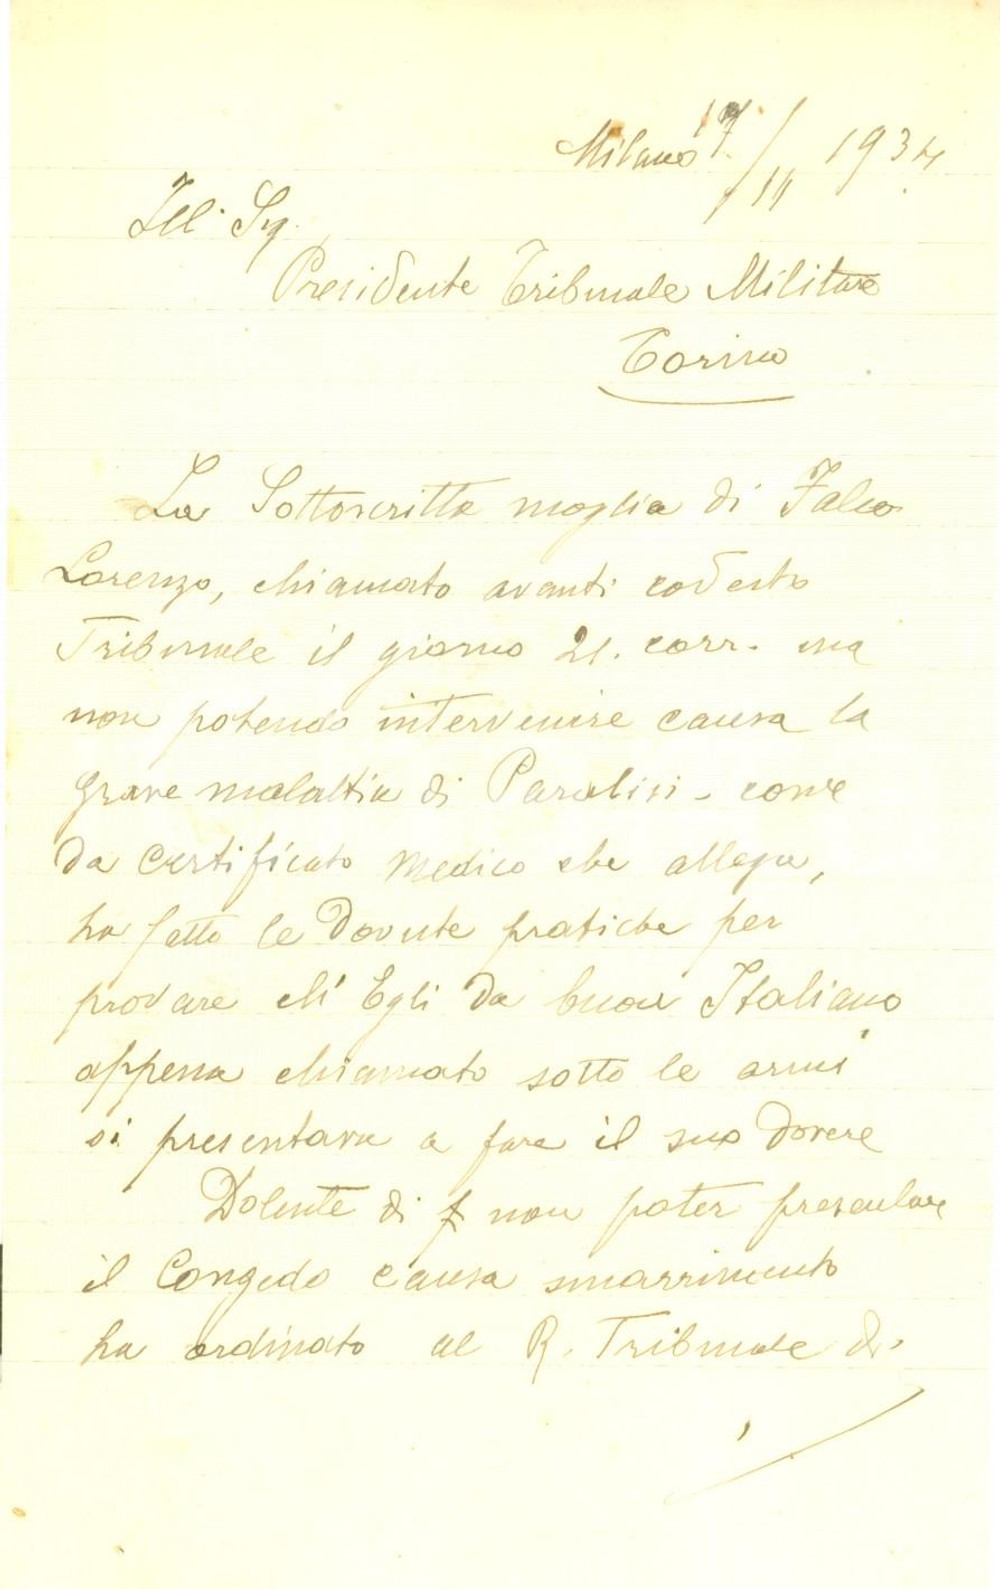 Milano 17/11 1934
Ill. Sig.
Presidente Tribunale Militare
Torino
La Sottoscritta moglia di Falco
Lorenzo, chiamato avanti codesto
Tribunale il giorno 21. corr. ma
non potendo intervenire causa la
grave malattia di Paralisi - come
da certificato Medico che allega,
ha fatto le dovute pratiche per
provare ch' Egli da buon Italiano
appena chiamato sotto le armi
si presentava a fare il suo dovere
Dolente di non poter presentare
il Congedo causa smarrimento
ha ordinato al R. Tribunale di